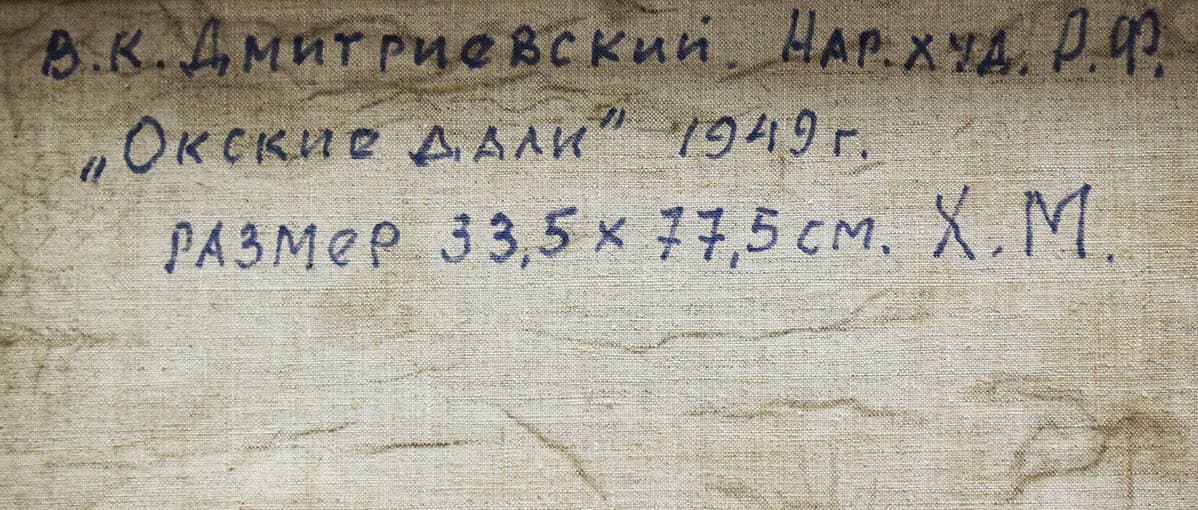 В.К. Дмитриевский. Нар.худ. Р.Ф.
„Окские дали” 1949 г.
размер 33,5 х 77,5 см. Х.М.